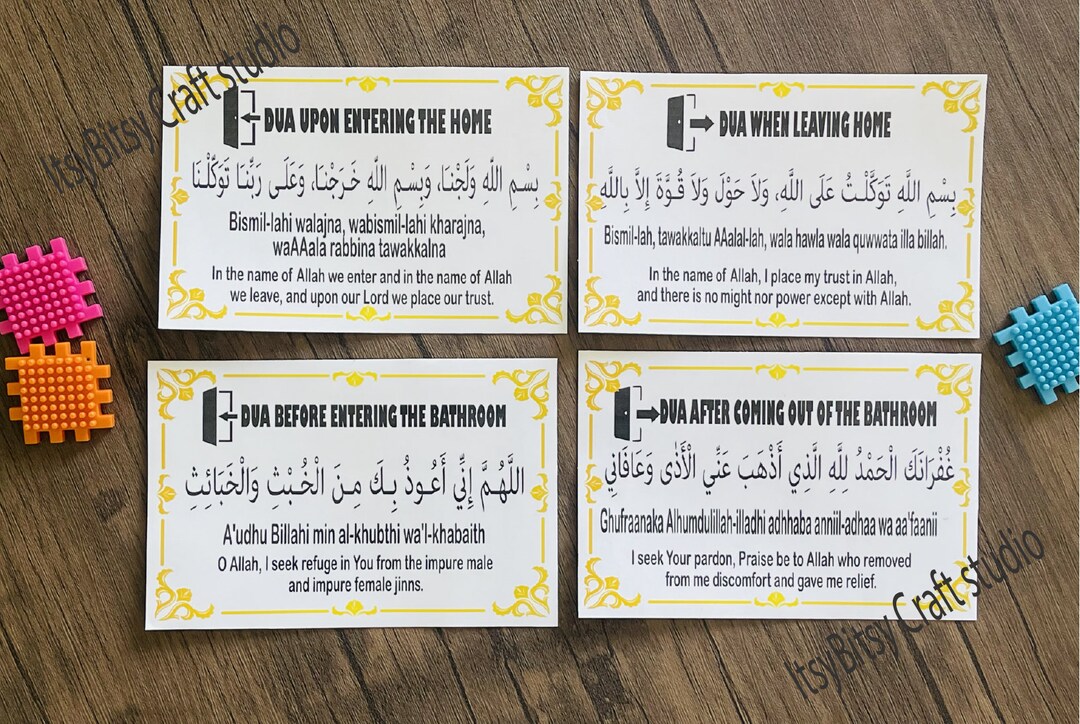 ItsyBitsy Craft studio
DUA UPON ENTERING THE HOME
بِسْمِ اللَّهِ وَلَجْنَا، وَبِسْمِ اللَّهِ خَرَجْنَا، وَعَلَى رَبِّنَا تَوَكَّلْنَا
Bismil-lahi walajna, wabismil-lahi kharajna,
waAAala rabbina tawakkalna
In the name of Allah we enter and in the name of Allah
we leave, and upon our Lord we place our trust.
DUA WHEN LEAVING HOME
بِسْمِ اللَّهِ تَوَكَّلْتُ عَلَى اللَّهِ، وَلاَ حَوْلَ وَلاَ قُوَّةَ إِلاَّ بِاللَّهِ
Bismil-lah, tawakkaltu AAalal-lah, wala hawla wala quwwata illa billah.
In the name of Allah, I place my trust in Allah,
and there is no might nor power except with Allah.
DUA BEFORE ENTERING THE BATHROOM
اللَّهُمَّ إِنِّي أَعُوذُ بِكَ مِنَ الْخُبْثِ وَالْخَبَائِثِ
A'udhu Billahi min al-khubthi wa'l-khabaith
O Allah, I seek refuge in You from the impure male
and impure female jinns.
DUA AFTER COMING OUT OF THE BATHROOM
غُفْرَانَكَ الْحَمْدُ لِلَّهِ الَّذِي أَذْهَبَ عَنِّي الْأَذَى وَعَافَانِي
Ghufraanaka Alhumdulillah-illadhi adhhaba anniil-adhaa wa aa'faanii
I seek Your pardon, Praise be to Allah who removed
from me discomfort and gave me relief.
ItsyBitsy Craft studio